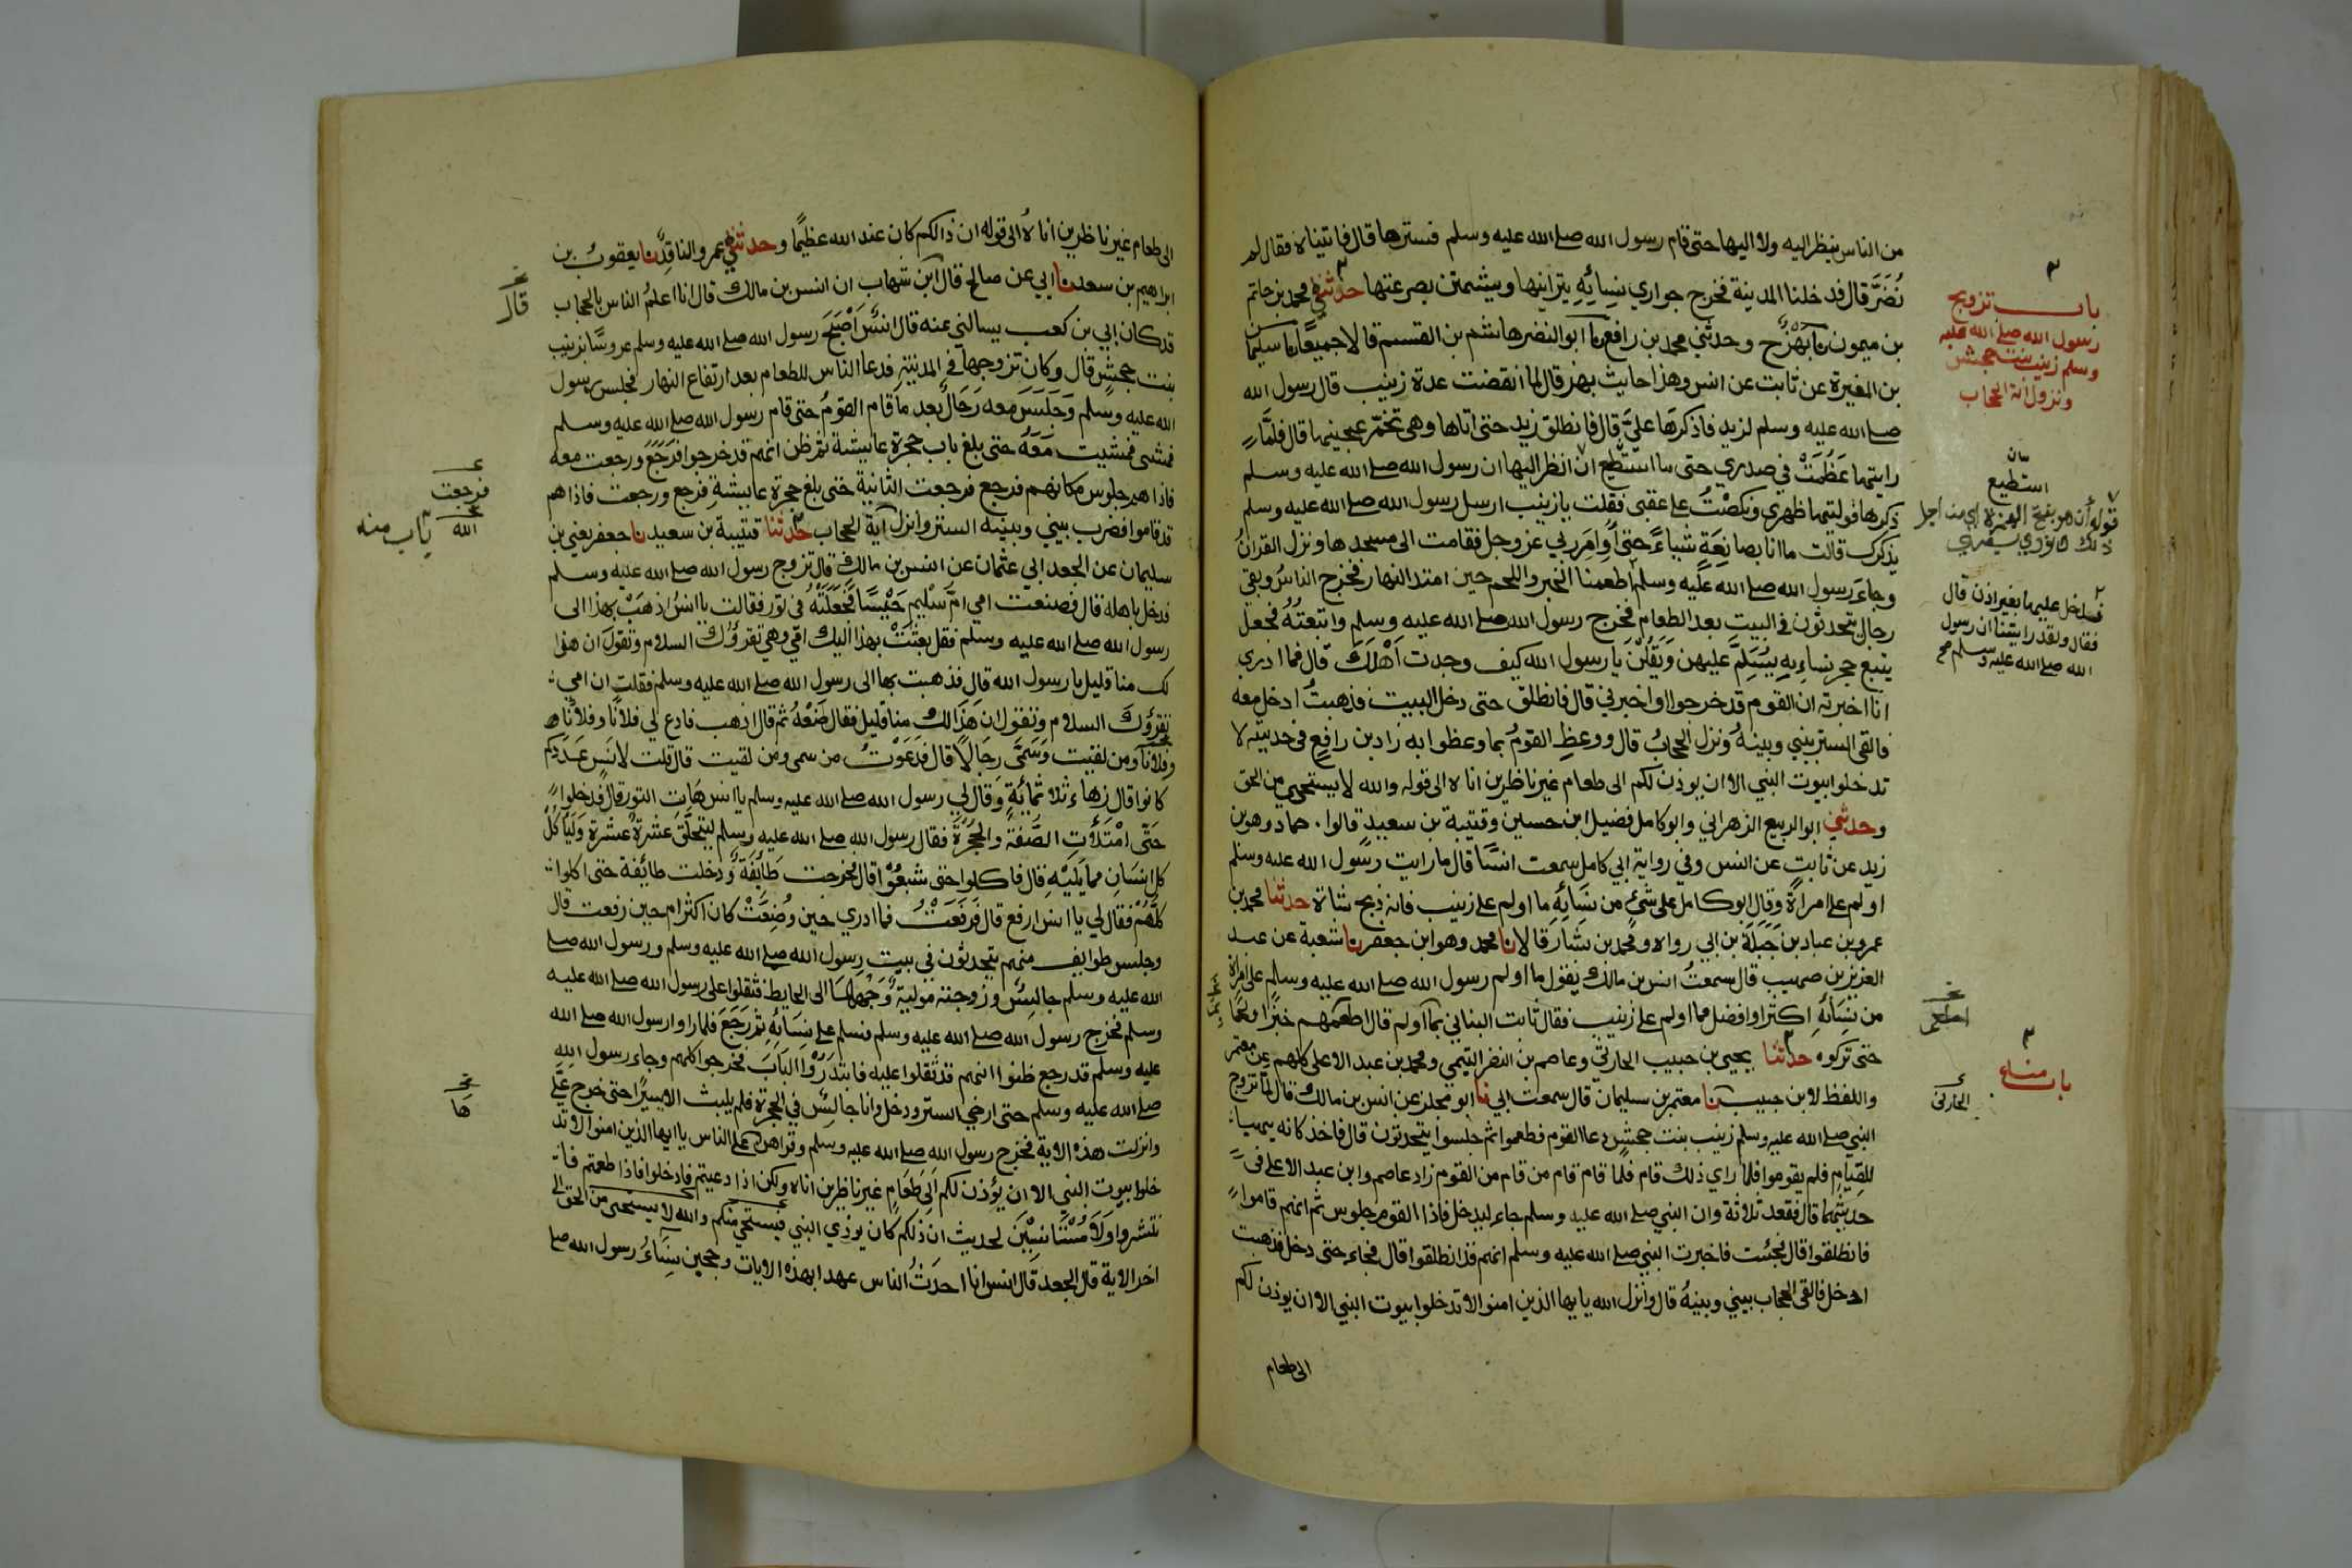 من الناس ينظر اليه ولا اليها حتى قام رسول الله صلى الله عليه وسلم فسترها قال فاتيناه فقال لم
نُضَرَّ قال فدخلنا المدينة فخرج جواري نسائه يتراينها ويشمتن بصرعتها حدثني محمد بن حاتم
بن ميمون نا بهز ح وحدثني محمد بن رافع نا ابو النضر هاشم بن القسم قالا جميعًا نا سليمان
بن المغيرة عن ثابت عن انس وهذا حديث بهز قال لما انقضت عدة زينب قال رسول الله
صلى الله عليه وسلم لزيد فاذكرها عليَّ قال فانطلق زيد حتى اتاها وهي تخمّر عجينها قال فلمَّا
رايتها عَظُمَتْ في صدري حتى ما استطيع ان انظر اليها ان رسول الله صلى الله عليه وسلم
ذكرها فوليتها ظهري ونكصْتُ على عقبي فقلت يا زينب ارسل رسول الله صلى الله عليه وسلم
يذكرك قالت ما انا بصانِعَةٍ شياءً حتى أُوامِرَ ربي عز وجل فقامت الى مسجدها ونزل القرانُ
وجاءَ رسول الله صلى الله عليه وسلم اطعمنا الخبز واللحم حين امتد النهار فخرج الناسُ وبقي
رجال يتحدثون في البيت بعد الطعام فخرج رسول الله صلى الله عليه وسلم واتبعتُهُ فجعل
يتبع حجر نساءِيهِ يُسَلِمُ عليهن وَيَقُلْنَ يا رسول الله كيف وجدت اَهْلَكَ قال فما ادري
انا اخبرته ان القوم قد خرجوا او اخبرني قال فانطلق حتى دخل البيت فذهبتُ ادخل معه
فالقى الستر بيني وبينهُ ونزل الحجابُ قال ووعظ القومُ بما وعظوا به زاد بن رافع في حديثه لا
تدخلوا بيوت النبي الا ان يوذن لكم الى طعام غير ناظرين اناه الى قوله والله لا يستحي من الحق
وحدثني ابو الربيع الزهراني وابو كامل فضيل ابن حسين وقتيبة بن سعيد قالوا. حماد وهو بن
زيد عن ثابت عن انس وفي رواية ابي كامل سمعت انسًا قال ما رايت رسول الله عليه وسلم
اولم على امراة وقال ابو كامل على شيءٍ من نِسَائِهِ ما اولم على زينب فانه ذبح شاة حدثنا محمد بن
عمرو بن عباد بن جَبَلَةَ بن ابي رواد ومحمد بن بشار قالا نا محمد وهو ابن جعفر نا شعبة عن عبد
العزيز بن صهيب قال سمعتُ انس بن مالك يقول ما اولم رسول الله صلى الله عليه وسلم على امراة
من نِسَائِهِ اكثر او افضل مما اولم على زينب فقال ثابت البناني بما اولم قال اطعمهم خبزًا ولحمًا
حتى تركوه حدثنا يحيى بن حبيب الحارثي وعاصم بن النضر التيمي ومحمد بن عبد الاعلى كلهم عن معتمر
واللفظ لابن حبيب نا معتمر بن سليمان قال سمعت ابي نا ابو مجلز عن انس بن مالك قال لما تزوج
النبي صلى الله عليه وسلم زينب بنت جحشٍ دعا القوم فطعموا ثم جلسوا يتحدثون قال فاخذ كانه يتهيا
للقِيَام فلم يقوموا فلما راي ذلك قام فلما قام قام من قام من القوم زاد عاصم وابن عبد الاعلى في
حديثهما قال فقعد ثلاثة وان النبي صلى الله عليه وسلم جاء ليدخل فاذا القوم جلوس ثم انهم قاموا
فانطلقوا قال فجئت فاخبرت النبي صلى الله عليه وسلم انهم قد انطلقوا قال فجاء حتى دخل فذهبت
ادخل فالقى الحجاب بيني وبينهُ قال وانزل الله يايها الذين امنوا لا تدخلوا بيوت النبي الا ان يوذن لكم
الى طعام
باب تزويج
رسول الله صلى الله عليه
وسلم زينب بنت جحش
ونزول اية الحجاب
استطيع
قوله أن هو بفتح الهمزة اي من اجل
ذلك
فدخل عليها بغير اذن قال
فقال ولقد رايتنا ان رسول
الله صلى الله عليه وسلم صح
باب منه
الحارثي
الى طعام غير ناظرين اناهُ الى قوله ان ذالكم كان عند الله عظيمًا وحدثني عمرو الناقد نا يعقوبُ بن
ابراهيم بن سعد نا ابي عن صالح قال ابن شهاب ان انس بن مالك قال انا اعلمُ الناس بالحجاب
قد كان ابي بن كعب يسالني عنه قال انسٌ اَصْبَحَ رسول الله صلى الله عليه وسلم عروسًا بزينب
بنت جحشٍ قال وكان تزوجها في المدينة فدعا الناس للطعام بعد ارتفاع النهار فجلس رسول
الله عليه وسلم وَجَلَسَ معه رِجَالٌ بعد ما قام القومُ حتى قام رسول الله صلى الله عليه وسلم
فمشى فمشيت مَعَهُ حتى بلغ باب حجرة عايشة ثم ظن انهم قد خرجوا فرَجَعَ ورجعت معه
فاذا هم جلوس مكانهم فرجع فرجعت الثانية حتى بلغ حجرة عايشة فرجع ورجعت فاذا هم
قد قاموا فضرب بيني وبينه الستر وانزل اية الحجاب حدثنا قتيبة بن سعيد نا جعفر يعني بن
سليمان عن الجعد ابي عثمان عن انس بن مالك قال تزوج رسول الله صلى الله عليه وسلم
فدخل باهله قال فصنعت امي امُّ سُلَيم حَيْسًا فَجَعَلَتْهُ في تور فقالت يا انسُ اذهَبْ بهذا الى
رسول الله صلى الله عليه وسلم فقل بعَثَتْ بهذا اليك امّي وهي تقرؤك السلام وتقول ان هذا
لك منا قليل يا رسول الله قال فذهبت بها الى رسول الله صلى الله عليه وسلم فقلت ان امي
تقرؤكَ السلام وتقول ان هَذَا لك منا قليل فقال ضَعْهُ ثم قال اذهب فادع لي فلانًا وفلانًا
وفلانًا ومن لقيت وَسَمَّى رِجَالًا قال فدَعَوْتُ من سمى ومن لقيت قال قلت لانس عَدَدَكم
كانوا قال زهاء ثلاثمائةٍ وقال لي رسول الله صلى الله عليه وسلم يا انس هَاتِ التور قال فدخلوا
حَتَّى امْتَلَأَتِ الصُّفة والحُجْرَةَ فقال رسول الله صلى الله عليه وسلم ليتحلّق عشرةٌ عشرة وَليأكُلْ
كل انسان مما يَلِيْهِ قال فاكلوا حتى شبعُوْا قال فخرجت طَائِفَةٌ ودخلت طائفة حتى اكلوا
كلُّهُمْ فقال لي يا انس ارفع قال فَرَفَعْتُ فما ادري حين وُضِعَتْ كان اكثر ام حين رفعت قال
وجلس طوايف منهم يتحدثون في بيت رسول الله صلى الله عليه وسلم ورسول الله صلى
الله عليه وسلم جالِسٌ وزوجته مولية وَجْهَهَا الى الحايط فثقلوا على رسول الله صلى الله عليه
وسلم فخرج رسول الله صلى الله عليه وسلم فسلم على نِسَائِهِ ثم رَجَعَ فلما راوا رسول الله صلى الله
عليه وسلم قد رجع ظنوا انهم قد ثقلوا عليه فابتدَرُوْا البَابَ فخرجوا كلهم وجاء رسول الله
صلى الله عليه وسلم حتى ارخى الستر ودخل وانا جالِسٌ في الحجرة فلم يلبث الا يسيرًا حتى خرج عَلَيَّ
وانزلت هذه الاية فخرج رسول الله صلى الله عليه وسلم وقراهن على الناس يا ايها الذين امنوا لا تد
خلوا بيوت النبي الا ان يؤذن لكم اِلَى طَعَامٍ غير ناظرين اناه ولكن اذا دعيتم فادخلوا فاذا طعمتم فا
نتشروا وَلَا مُسْتَانسِيْنَ لحديث ان ذلكم كان يوذي النبي فيستحي منكم والله لا يستحي من الحق الى
اخر الاية قال الجعد قال انس انا احدَثُ الناس عهدا بهذه الايات وحجبن نِسَاءُ رسول الله صلى
قال
فرجعت
الله
باب منه
ها